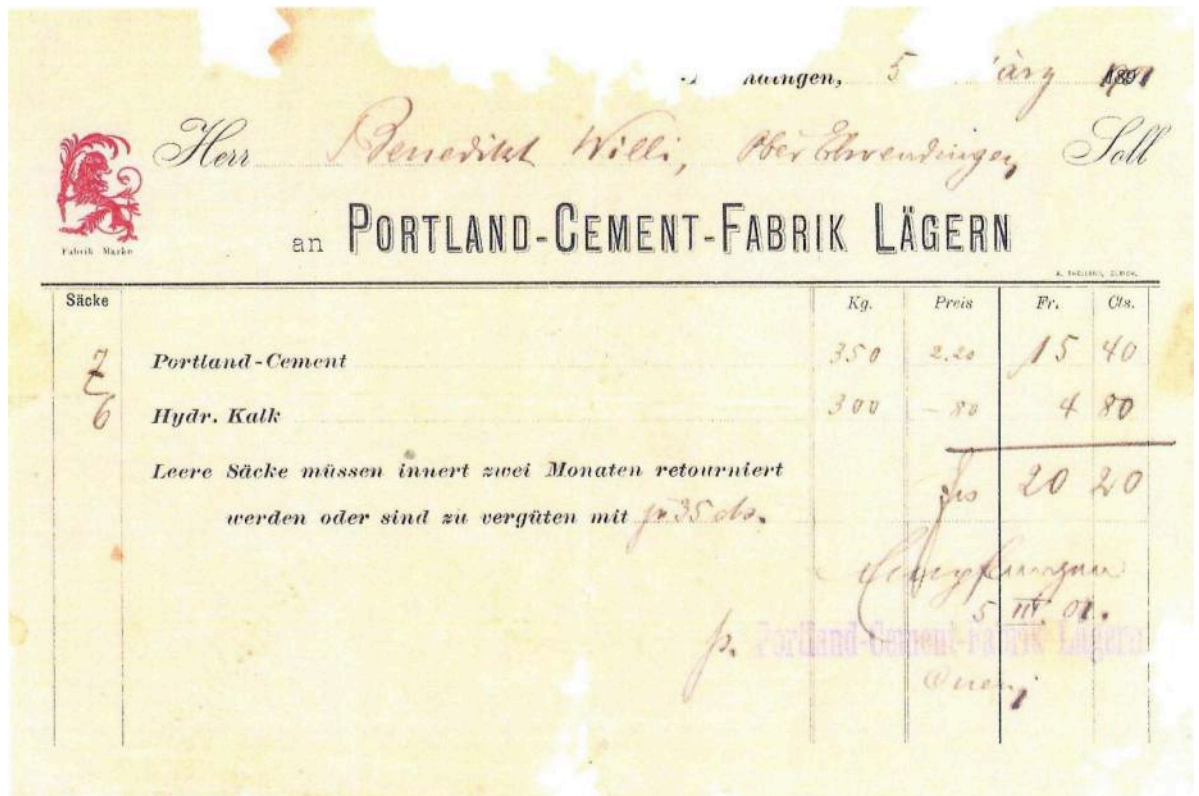 5 März 1901
Herr Benedikt Willi, Ober Ehrendingen Soll
Fabrik Marke
an PORTLAND-CEMENT-FABRIK LÄGERN
Säcke Kg. Preis Fr. Cts.
7 Portland-Cement 350 2.20 15 40
6 Hydr. Kalk 300 -80 4 80
Leere Säcke müssen innert zwei Monaten retourniert
frs 20 20
werden oder sind zu vergüten mit je 35 cts.
Empfangen
5 III 01.
p. Portland-Cement-Fabrik Lägern